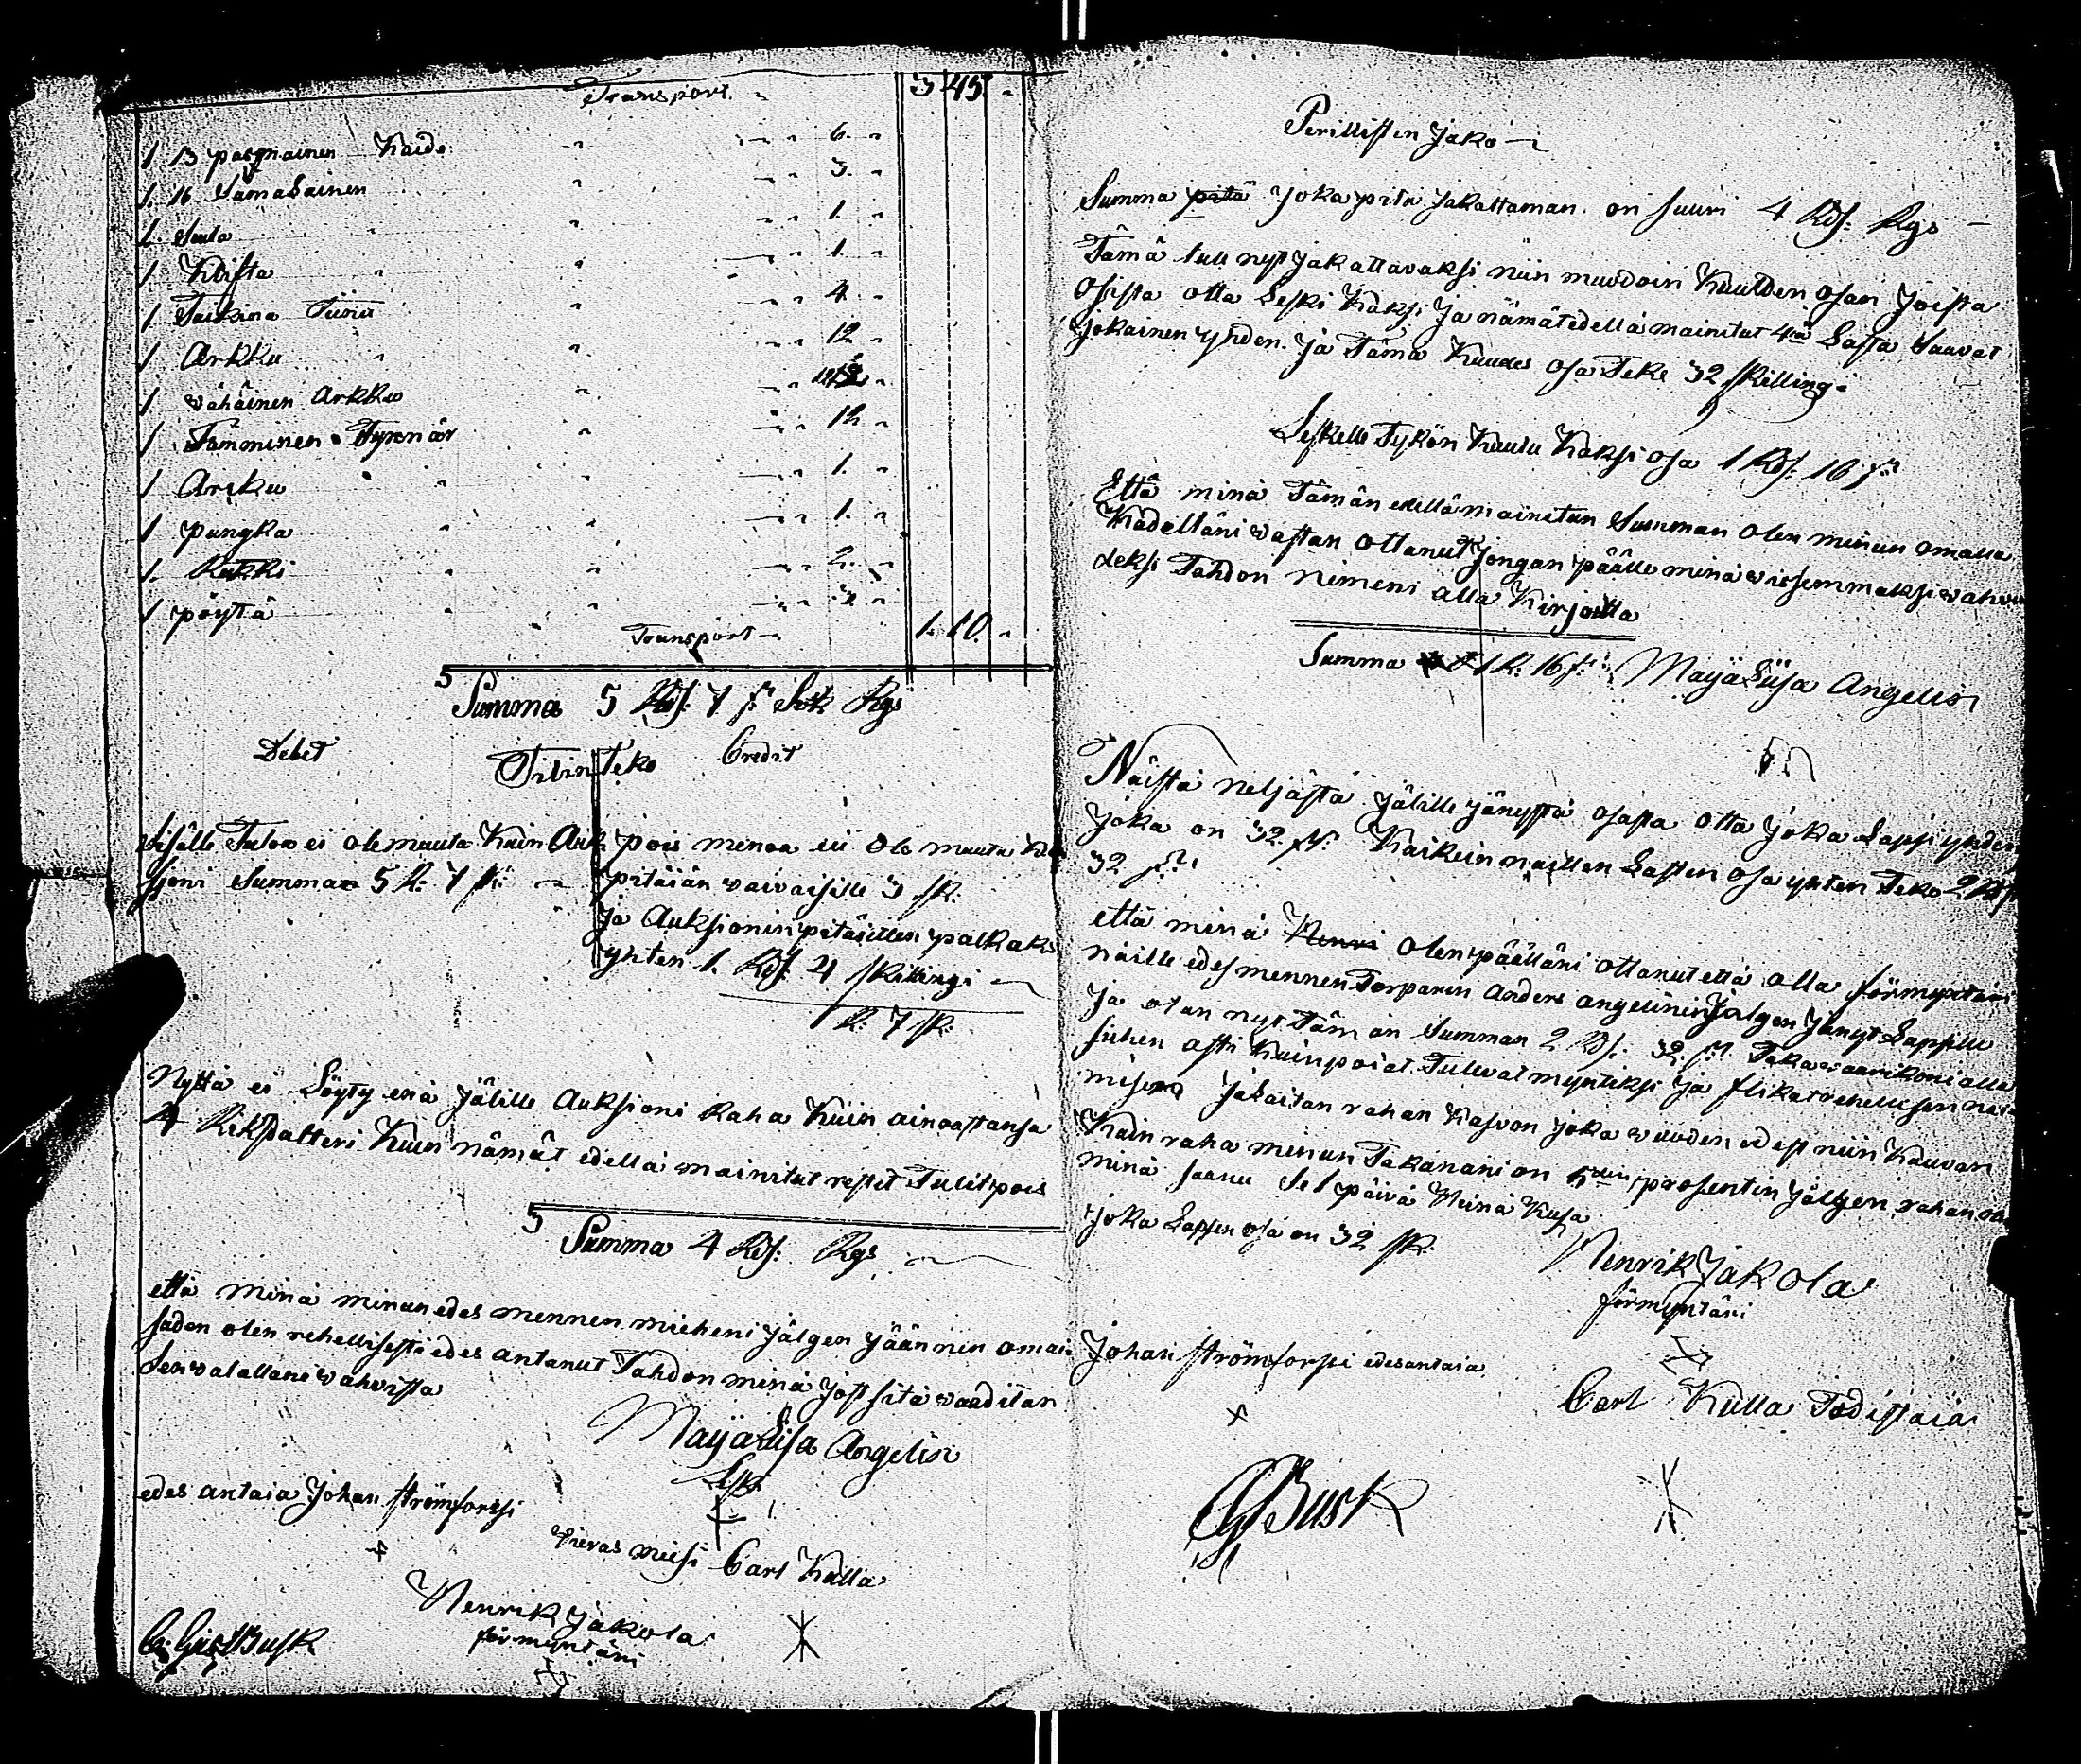 Transport 3 45
1 13 pasmainen Kaide 6
1. 16 Samalainen 3.
1. Seula 1.
1 Kiista 1.
1 Taikina Tiinu 4
1 Arkku 12
1 vähäinen Arkku
1 Tämminen Tynnör 12
1 Arcku 1.
1 pungka 1.
1. Rukki 2.
1 pöyttä 3
Transport 1. 10.
Summa 5 Rd: 7 s Rgs
Debet Tilin Teko Credit
sisälle Tuloo ei ole muuta Kuin Auk
sjoni Summan 5 R: 7 sk:
pois menoa eii Ole muuta
pitäiän vaivaisille 3 sk.
ja Auksionin pitäillen palkaks
yhten 1. Rd: 4 skillingi
1 R: 7 sk:
Nyttä ei Löyty enä jälille Auksioni Raha Kuin ainoastansa
4 Riksdalteri Kuin nämät edellä mainitut restit Tulit pois
Summa 4 Rd: Rgs
että minä minun edes mennen mieheni jälgen jäännin omai
suden olen rehellisesti edes antanut Tahdon minä jost sitä vaaditan
Sen valallani vahvista
Maija Lisa Angelin
Leski
edes antaia Johan strömforssi
vieras miesi Carl Kulla
Henrik Jakola
förmyntäri
Busk
Perillisten Jako
Summa pitä joka pitä jakattaman on suuri 4 Rd: Rgs
Tämä tule nyt jakattavaksi niin muodoin Kuuteen osan joista
Osista otta Leski Kaksi ja nämät edellä mainitut 4jä Lasta Saavat
jokainen yhden. ja Tämä Kuudes osa Teke 32 skillingi
Leskelle Tykön Kuulu Kaksi osa 1 Rd: 16 s
Että minä Tämän edellä mainitun Summan olen minun omalla
Kädelläni vastan ottanut jongan päälle minä vissemmaksi vahvu
deksi Tahdon nimeni alla Kirjoitta
Summa 1 R: 16 s: Maija Liisa Angelin
Näistä neljästä jälille jänystä osasta otta joka Lapsi yhden
joka on 32 sk: Kaikein naillen Lasten osa yhten Teko 2 Rd
32 sk
että minä Henri Olen päälläni ottanut että olla förmyntäri
näille edes mennen Torparin Anders angelinin jälgen jänyt Lapsille
ja otan nyt Tämän Summan 2 Rd: 32 sk: Taka
siihen asti Kuin poiat Tulevat myntiksi ja flikat
ja laitan rahan Kasvon joka vuoden edest niin Kauvan
Kuin raha minun Takanani on prosentin jälgen rahan
minä saanu Se 1 päivä Heinä Kusa
joka Lapsen osa on 32 sk.
Henrik Jakola
förmyntäri
Johan strömforssi edesantaia
Carl Kulla Todistaia
Busk